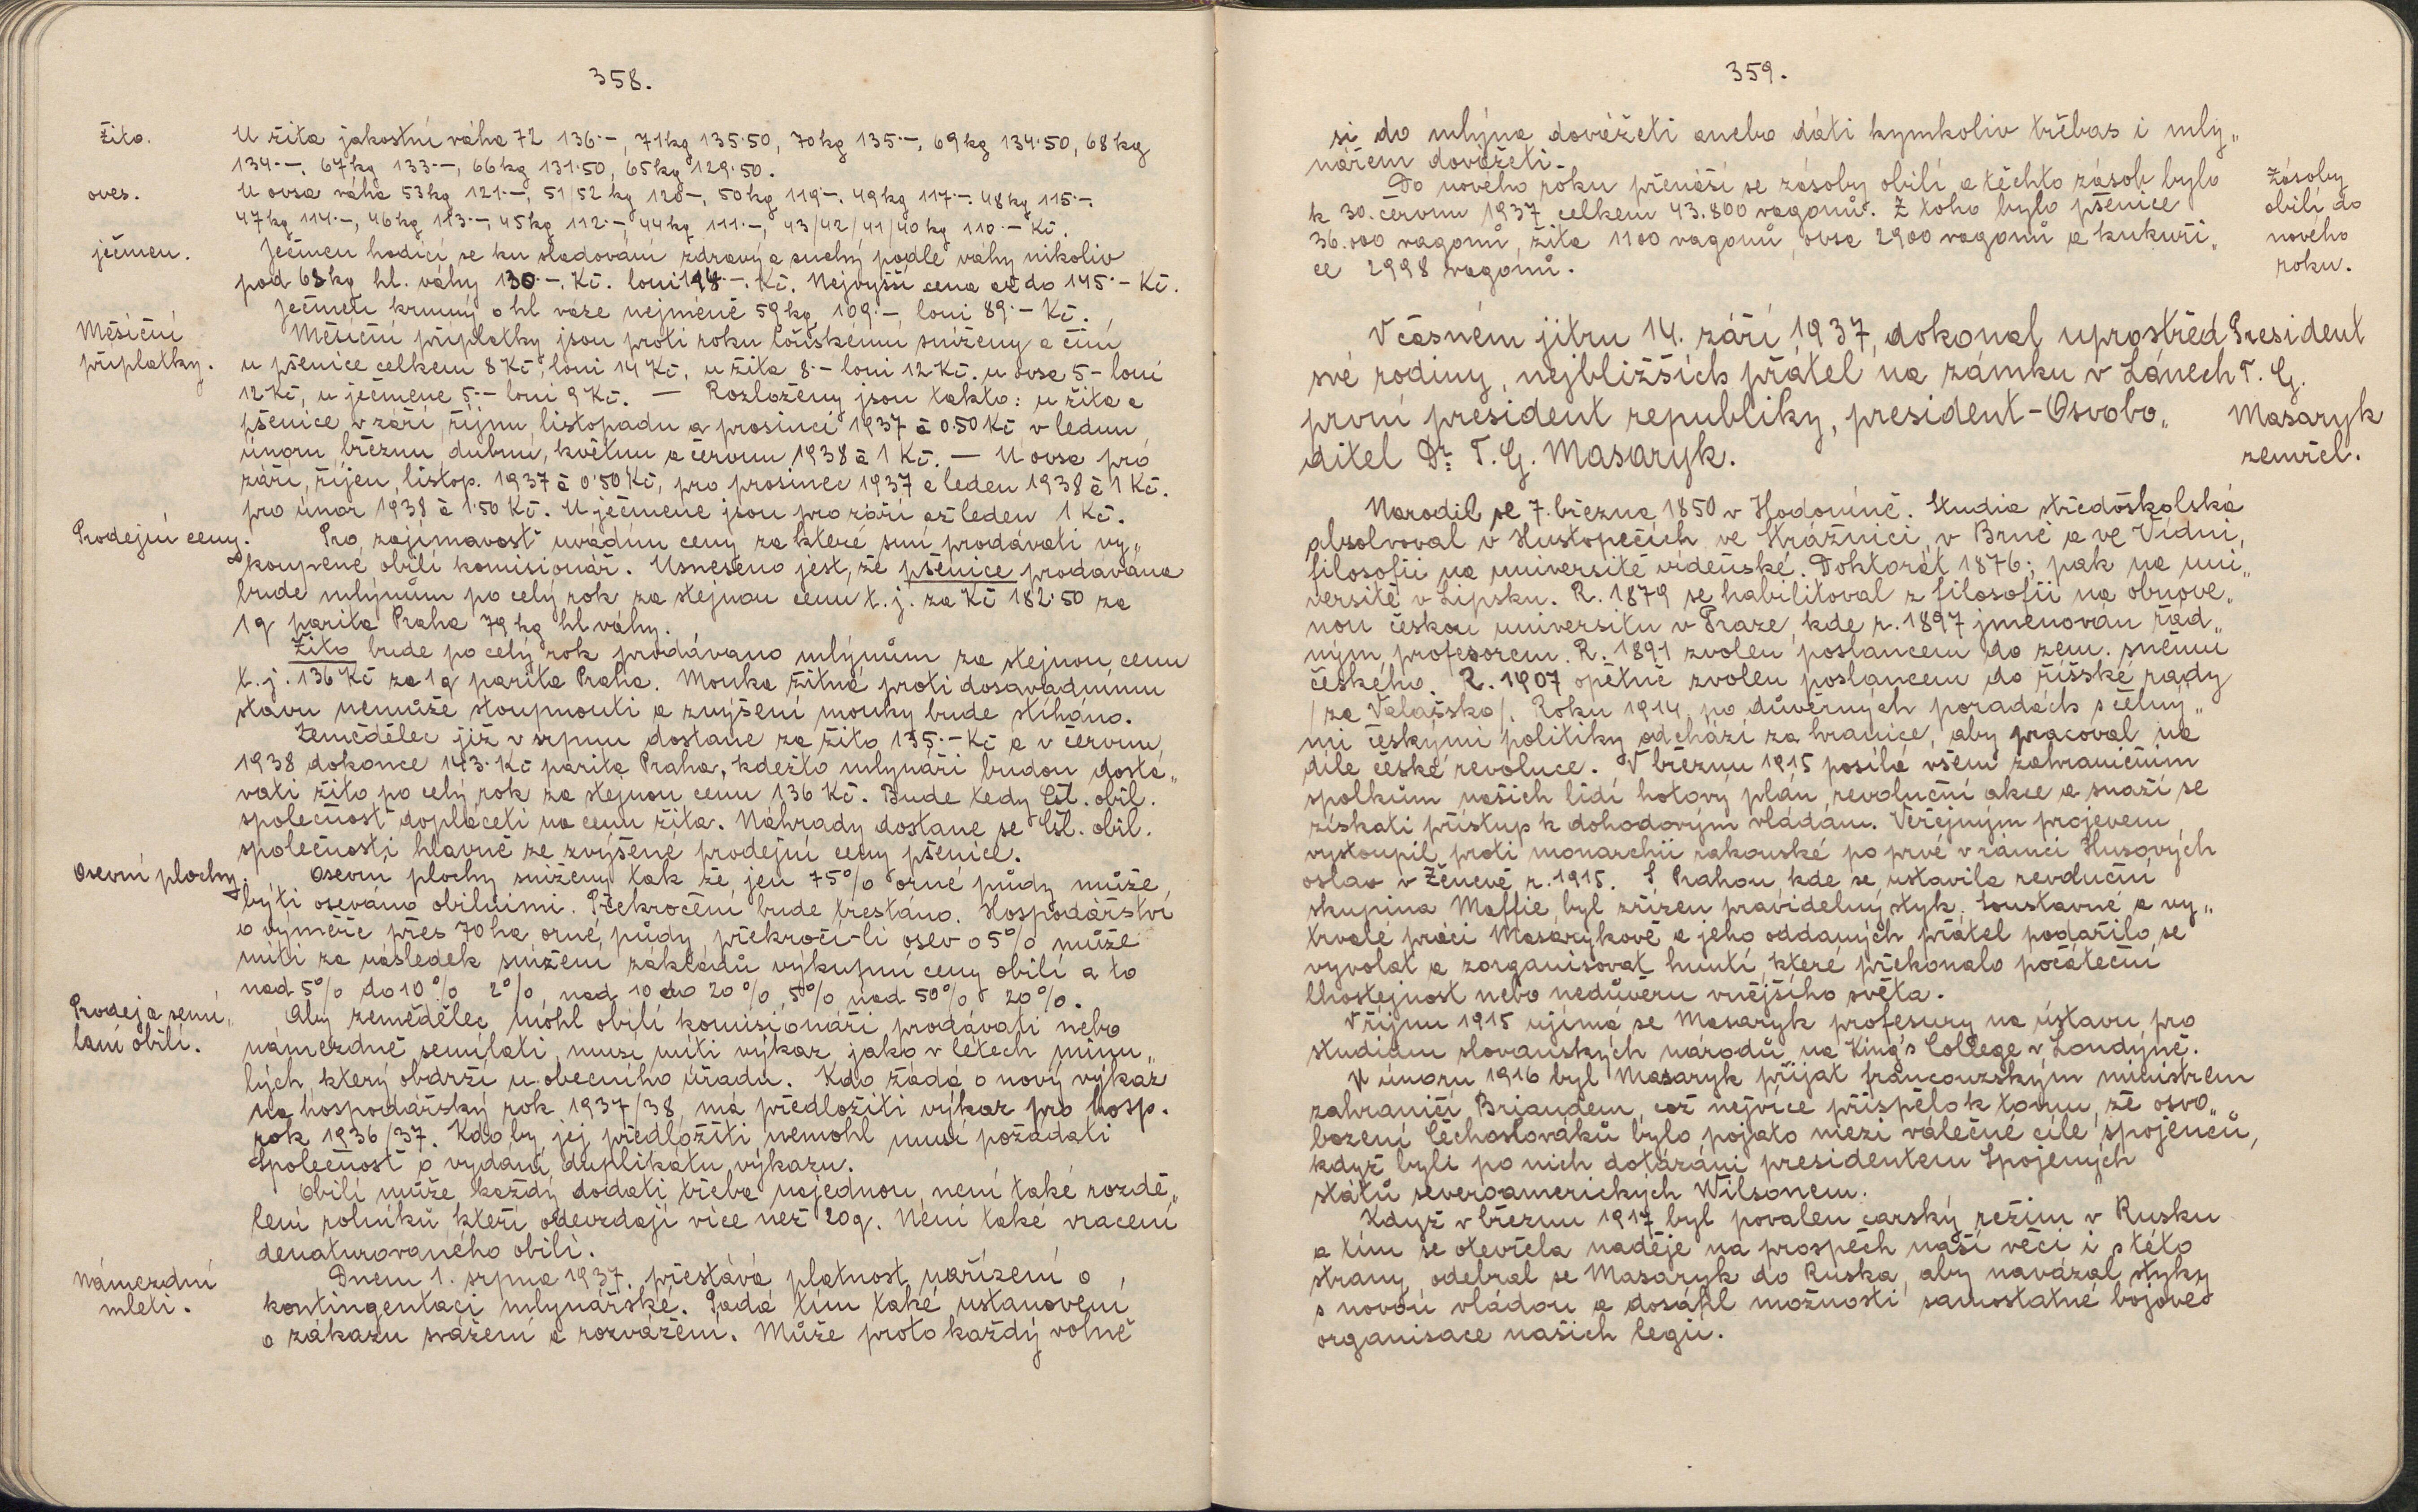 358.
žito.
U žita jakostní váha 72 136.–, 71kg 135.50, 70kg 135.–, 69kg 134.50, 68kg
134.–, 67kg 133.–, 66kg 131.50, 65kg 129.50.
oves.
U ovsa váha 53kg 121.–, 51/52 kg 120–, 50kg 119.–, 49kg 117.– 48kg 115.–.
47kg 114.–, 46kg 113.–, 45kg 112.–, 44kg 111.–, 43/42/41/40kg 110.– Kč.
ječmen.
Ječmen hodící se ku sladování zdravý a suchý podle váhy nikoliv
pod 68kg hl. váhy 130.–. Kč. loni 148.–. Kč. Nejvyšší cena až do 145.– Kč.
Ječmen krmný o hl váze nejméně 59kg 109.–, loni 89.– Kč.
Měsíční
příplatky.
Měsíční příplatky jsou proti roku loňskému sníženy a činí
u pšenice celkem 8 Kč, loni 14 Kč, u žita 8.– loni 12 Kč. u ovsa 5– loni
12 Kč, u ječmene 5.– loni 9 Kč. — Rozloženy jsou takto: u žita a
pšenice v září, říjnu, listopadu a prosinci 1937 à 0.50 Kč v lednu,
únoru, březnu, dubnu, květnu a červnu 1938 à 1 Kč. — U ovsa pro
září, říjen, listop. 1937 à 0.50 Kč, pro prosinec 1937 a leden 1938 à 1 Kč.
pro únor 1938 à 1.50 Kč. U ječmene jsou pro září až leden 1 Kč.
Prodejní ceny.
Pro zajímavost uvádím ceny za které smí prodávati vy„
koupené obilí komisionář. Usneseno jest, že pšenice prodávána
bude mlýnům po celý rok za stejnou cenu t. j. za Kč 182.50 za
1q parita Praha 79kg hl váhy.
Žito bude po celý rok prodáváno mlýnům za stejnou cenu
t. j. 136 Kč za 1q parita Praha. Mouka žitná proti dosavadnímu
stavu nemůže stoupnouti a zvýšení mouky bude stíháno.
Zemědělec již v srpnu dostane za žito 135.– Kč a v červnu
1938 dokonce 143. Kč parita Praha, kdežto mlynáři budou dostá„
vati žito po celý rok za stejnou cenu 136 Kč. Bude tedy Čsl. obil.
společnost dopláceti na cenu žita. Náhrady dostane se Čsl. obil.
společnosti hlavně ze zvýšené prodejní ceny pšenice.
Osevní plochy.
Osevní plochy sníženy tak že jen 75% orné půdy může
býti oseváno obilninami. Překročení bude trestáno. Hospodářství
o výměře přes 70 ha orné půdy, překročí-li osev o 5% může
míti za následek snížení základů výkupní ceny obilí a to
nad 5% do 10% 2%, nad 10 do 20%, 5% nad 50% 20%.
Prodej a semí„
laní obilí.
Aby zemědělec mohl obilí komisionáři prodávati nebo
námezdně semílati musí míti výkaz jako v létech minu„
lých, který obdrží u obecního úřadu. Kdo žádá o nový výkaz
na hospodářský rok 1937/38, má předložiti výkaz pro hosp.
rok 1936/37. Kdo by jej předložiti nemohl musí požádati
Společnost o vydání duplikátu výkazu.
Obilí může každý dodati třeba najednou, není také rozdě„
lení rolníků kteří odevzdají více než 20q. Není také vracení
denaturovaného obilí.
Námezdní
mletí.
Dnem 1. srpna 1937. přestává platnost nařízení o
kontingentaci mlynářské. Padá tím také ustanovení
o zákazu svážení a rozvážení. Může proto každý volně
359.
si do mlýna dovážeti anebo dáti kýmkoliv třebas i mly„
nářem dovážeti.
Do nového roku přenáší se zásoby obilí a těchto zásob bylo
k 30. červnu 1937 celkem 43.800 vagonů. Z toho bylo pšenice
36.000 vagonů, žita 1100 vagonů, ovsa 2900 vagonů a kukuři„
ce 2998 vagonů.
Zásoby
obilí do
nového
roku.
V časném jitru 14. září 1937, dokonal uprostřed
své rodiny, nejbližších přátel na zámku v Lánech
první president republiky, president-Osvobo„
ditel Dr. T. G. Masaryk.
President
T. G.
Masaryk
zemřel.
Narodil se 7. března 1850 v Hodoníně. Studia středoškolská
absolvoval v Hustopečích, ve Strážnici, v Brně a ve Vídni,
filosofii na universitě vídeňské. Doktorát 1876; pak na uni„
versitě v Lipsku. R. 1879 se habilitoval z filosofii na obnove„
nou českou universitu v Praze, kde r. 1897 jmenován řád„
ným profesorem. R. 1891 zvolen poslancem do zem. sněmu
českého. R. 1907 opětně zvolen poslancem do říšské rady
/za Valašsko/. Roku 1914, po důvěrných poradách s čelný„
mi českými politiky odchází za hranice, aby pracoval na
díle české revoluce. V březnu 1915 posílá všem zahraničním
spolkům našich lidí hotový plán, revoluční akce a snaží se
získati přístup k dohodovým vládám. Veřejným projevem
vystoupil proti monarchii rakouské po prvé v rámci Husových
oslav v Ženevě r. 1915. S Prahou, kde se ustavila revoluční
skupina Maffie, byl zřízen pravidelný styk. Soustavné a vy„
trvalé práci Masarykově a jeho oddaných přátel podařilo se
vyvolat a zorganisovat hnutí, které překonalo počáteční
lhostejnost nebo nedůvěru vnějšího světa.
V říjnu 1915 ujímá se Masaryk profesury na ústavu pro
studium slovanských národů na King's College v Londýně.
V únoru 1916 byl Masaryk přijat francouzským ministrem
zahraničí Briandem, což nejvíce přispělo k tomu, že osvo„
bození Čechoslováků bylo pojato mezi válečné cíle spojenců,
když byli po nich dotázáni presidentem Spojených
států severoamerických Wilsonem.
Když v březnu 1917 byl povalen carský režim v Rusku
a tím se otevřela naděje na prospěch naší věci i s této
strany, odebral se Masaryk do Ruska, aby navázal styky
s novou vládou a dosáhl možnosti samostatné bojové
organisace našich legií.